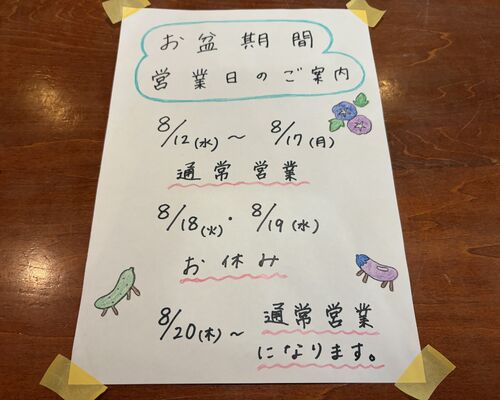 お盆期間
営業日のご案内
8/12(水)～ 8/17(月)
通常営業
8/18(火)・8/19(水)
お休み
8/20(木)～ 通常営業
になります。